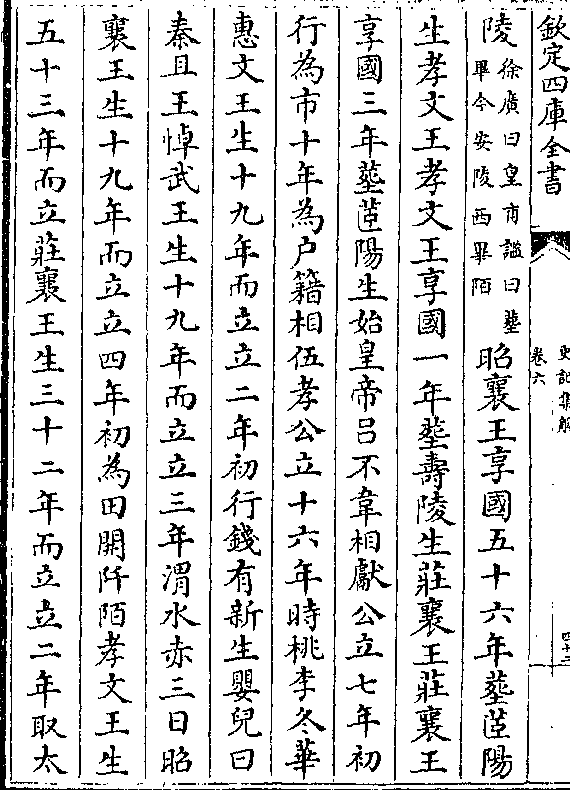 欽定四庫全書
史記集解
卷六
陵徐廣曰皇甫謐曰塟畢今安陵西畢陌昭襄王享國五十六年塟茝陽
生孝文王孝文王享國一年塟壽陵生莊襄王莊襄王
享國三年塟茝陽生始皇帝吕不韋相獻公立七年初
行為市十年為户籍相伍孝公立十六年時桃李冬華
惠文王生十九年而立立二年初行錢有新生嬰兒曰
秦且王悼武王生十九年而立立三年渭水赤三日昭
襄王生十九年而立立四年初為田開阡陌孝文王生
五十三年而立莊襄王生三十二年而立立二年取太